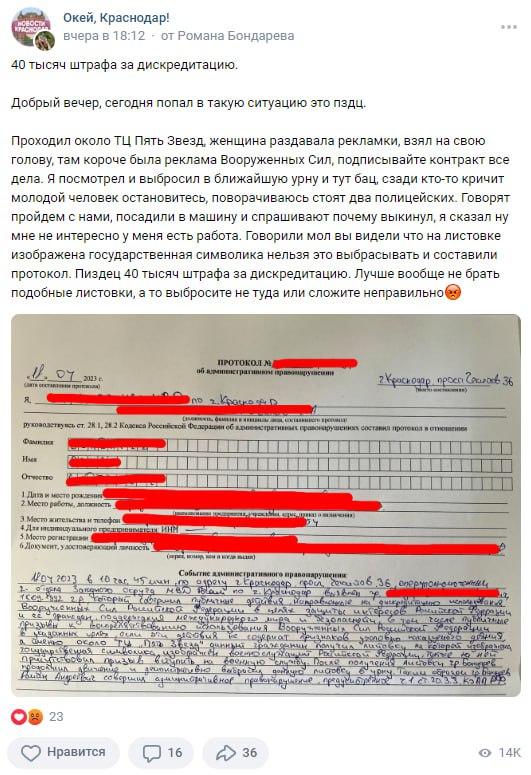 НОВОСТИ
КРАСНОДАРА
Окей, Краснодар!
вчера в 18:12 · от Романа Бондарева
40 тысяч штрафа за дискредитацию.
Добрый вечер, сегодня попал в такую ситуацию это пздц.
Проходил около ТЦ Пять Звезд, женщина раздавала рекламки, взял на свою
голову, там короче была реклама Вооруженных Сил, подписывайте контракт все
дела. Я посмотрел и выбросил в ближайшую урну и тут бац, сзади кто-то кричит
молодой человек остановитесь, поворачиваюсь стоят два полицейских. Говорят
пройдем с нами, посадили в машину и спрашивают почему выкинул, я сказал ну
мне не интересно у меня есть работа. Говорили мол вы видели что на листовке
изображена государственная символика нельзя это выбрасывать и составили
протокол. Пиздец 40 тысяч штрафа за дискредитацию. Лучше вообще не брать
подобные листовки, а то выбросите не туда или сложите неправильно😡
ПРОТОКОЛ №
об административном правонарушении
07 2023 г.
(дата составления протокола)
г. Краснодар
36
(место составления)
Я,
по г. Краснодар
(должность, фамилия и инициалы лица, составившего протокол)
руководствуясь ст. 28.1, 28.2 Кодекса Российской Федерации об административных правонарушениях составил протокол в отношении
Фамилия
Имя
Отчество
1.Дата и место рождения
2.Место работы, должность
3.Место жительства и телефон
4.Для индивидуального предпринимателя ИНН
5.Место регистрации
6.Документ, удостоверяющий личность
(серия, номер, кем и когда выдан)
Событие административного правонарушения:
2023 в 10 час. 45 мин. по адресу г. Краснодар
36
г. Краснодару
публичные действия, направленные на дискредитацию использования
Вооруженных Сил Российской Федерации в целях защиты интересов Российской Федерации
и ее граждан, поддержания международного мира и безопасности, в том числе публичные
призывы к воспрепятствованию использования Вооруженных Сил Российской Федерации
в указанных целях, если эти действия не содержат признаков уголовно наказуемого деяния
а именно около ТЦ "Пять Звезд" данный гражданин получил листовку, на которой изображена
государственная символика, изображен военнослужащий Российской Федерации, также на ней
присутствовал призыв вступить на военную службу. После получения листовки гр. Бондарев
продолжил движение и
выбросил данную листовку в урну. Таким образом гр. Бондарев
Роман Андреевич совершил административное правонарушение предусмотренное ч.1 ст. 20.3.3 КоАП РФ
23
Нравится
16
36
14K